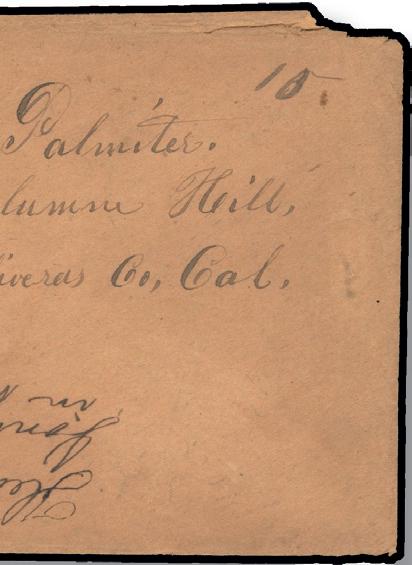 15
Palmiter.
lumne Hill,
iveras Co, Cal.